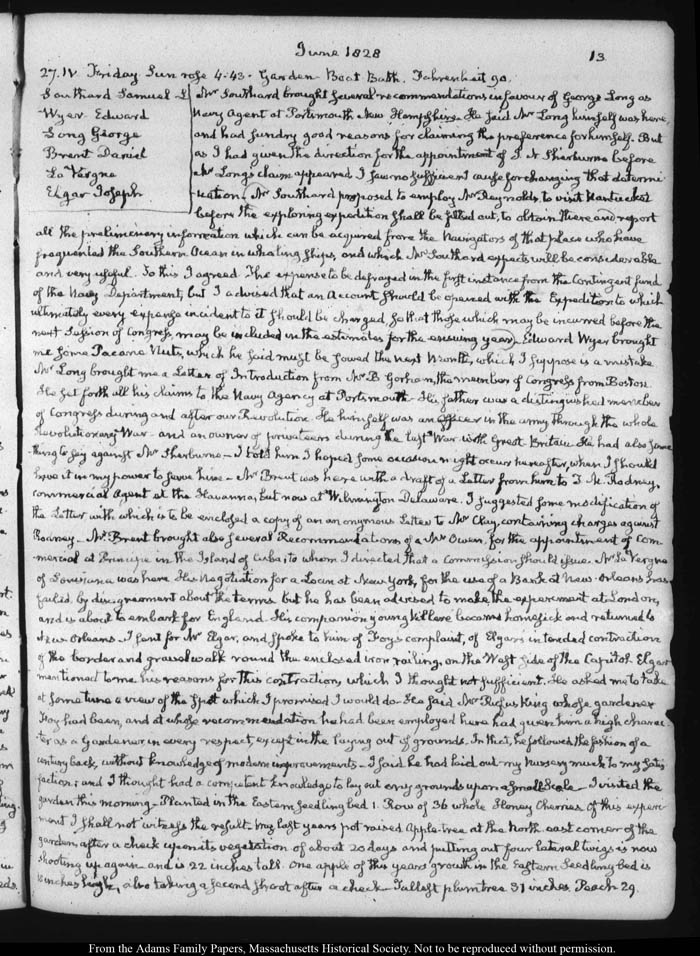 June 1828
13
27. IV. Friday. Sun rose 4:43. Garden. Boat Bath. Fahrenheit 90.
Southard Samuel L
Wyer Edward
Long George
Brent Daniel
La Vergne
Elgar Joseph
Mr Southard brought several recommendations in favour of George Long as
Navy Agent at Portsmouth New Hampshire. He said Mr Long himself was here,
and had sundry good reasons for claiming the preference for himself. But
as I had given the direction for the appointment of J. N. Sherburne before
Mr Long's claim appeared I saw no sufficient cause for changing that determi-
nation. Mr Southard proposed to employ Mr Reynolds, to visit Nantucket
before the exploring expedition shall be fitted out, to obtain there and report
all the preliminary information which can be acquired from the Navigators of that place who have
frequented the Southern Ocean in whaling ships, and which Mr Southard expects will be considerable
and very useful. To this I agreed. The expense to be defrayed in the first instance from the Contingent fund
of the Navy Department, but I advised that an Account should be opened with the Expedition to which
ultimately every expense incident to it should be charged, so that those which may be incurred before the
next Session of Congress may be included in the estimates for the ensuing year. Edward Wyer brought
me some Pacane Nuts, which he said must be sowed the next Month, which I suppose is a mistake
Mr Long brought me a Letter of Introduction from Mr B. Gorham, the member of Congress from Boston.
He set forth all his claims to the Navy Agency at Portsmouth. His father was a distinguished member
of Congress during and after our Revolution. He himself was an Officer in the army through the whole
Revolutionary War and an owner of privateers during the last War with Great Britain. He had also some
thing to say against Mr Sherburne — I told him I hoped some occasion might occur hereafter, when I should
have it in my power to serve him — Mr Brent was here with a draft of a Letter from him to T. M. Rodney,
commercial Agent at the Havanna, but now at Wilmington Delaware. I suggested some modification of
the Letter with which is to be enclosed a copy of an anonymous Letter to Mr Clay, containing charges against
Rodney — Mr Brent brought also several Recommendations of a Mr Owen, for the appointment of Com-
mercial at Principe in the Island of Cuba; to whom I directed that a Commission should issue. Mr La Vergne
of Louisiana was here. His Negotiation for a Loan at New York, for the use of a Bank at New-Orleans has
failed, by disagreement about the terms but he has been advised to make the experiment at London,
and is about to embark for England. His companion young became homesick and returned to
New Orleans. I sent for Mr Elgar, and spoke to him of Foy's complaint, of Elgar's intended contraction
of the border and gravel walk round the enclosed iron railing, on the West side of the Capitol. Elgar
mentioned to me his reasons for this contraction, which I thought not sufficient. He asked me to take
at some time a view of the spot which I promised I would do. He said Mr Rufus King whose gardener
Foy had been, and at whose recommendation he had been employed here had given him a high charac-
ter as a Gardener in every respect, except in the laying out of grounds. In that, he followed the fashion of a
century back, without knowledge of modern improvements — I said he had laid out my Nursery much to my satis-
faction; and I thought had a competent knowledge to lay out any grounds upon a small scale — I visited the
garden this morning — Planted in the Eastern seedling bed 1. Row of 36 whole Honey Cherries. Of this experi-
ment I shall not witness the result. My last years pot raised Apple-tree at the North east corner of the
garden, after a check upon its vegetation of about 20 days and putting out four lateral twigs is now
shooting up again and is 22 inches tall. One apple of this years growth in the Eastern Seedling bed is
inches high, also taking a second shoot after a check. Tallest plumtree 31 inches. Peach 29.
From the Adams Family Papers, Massachusetts Historical Society. Not to be reproduced without permission.